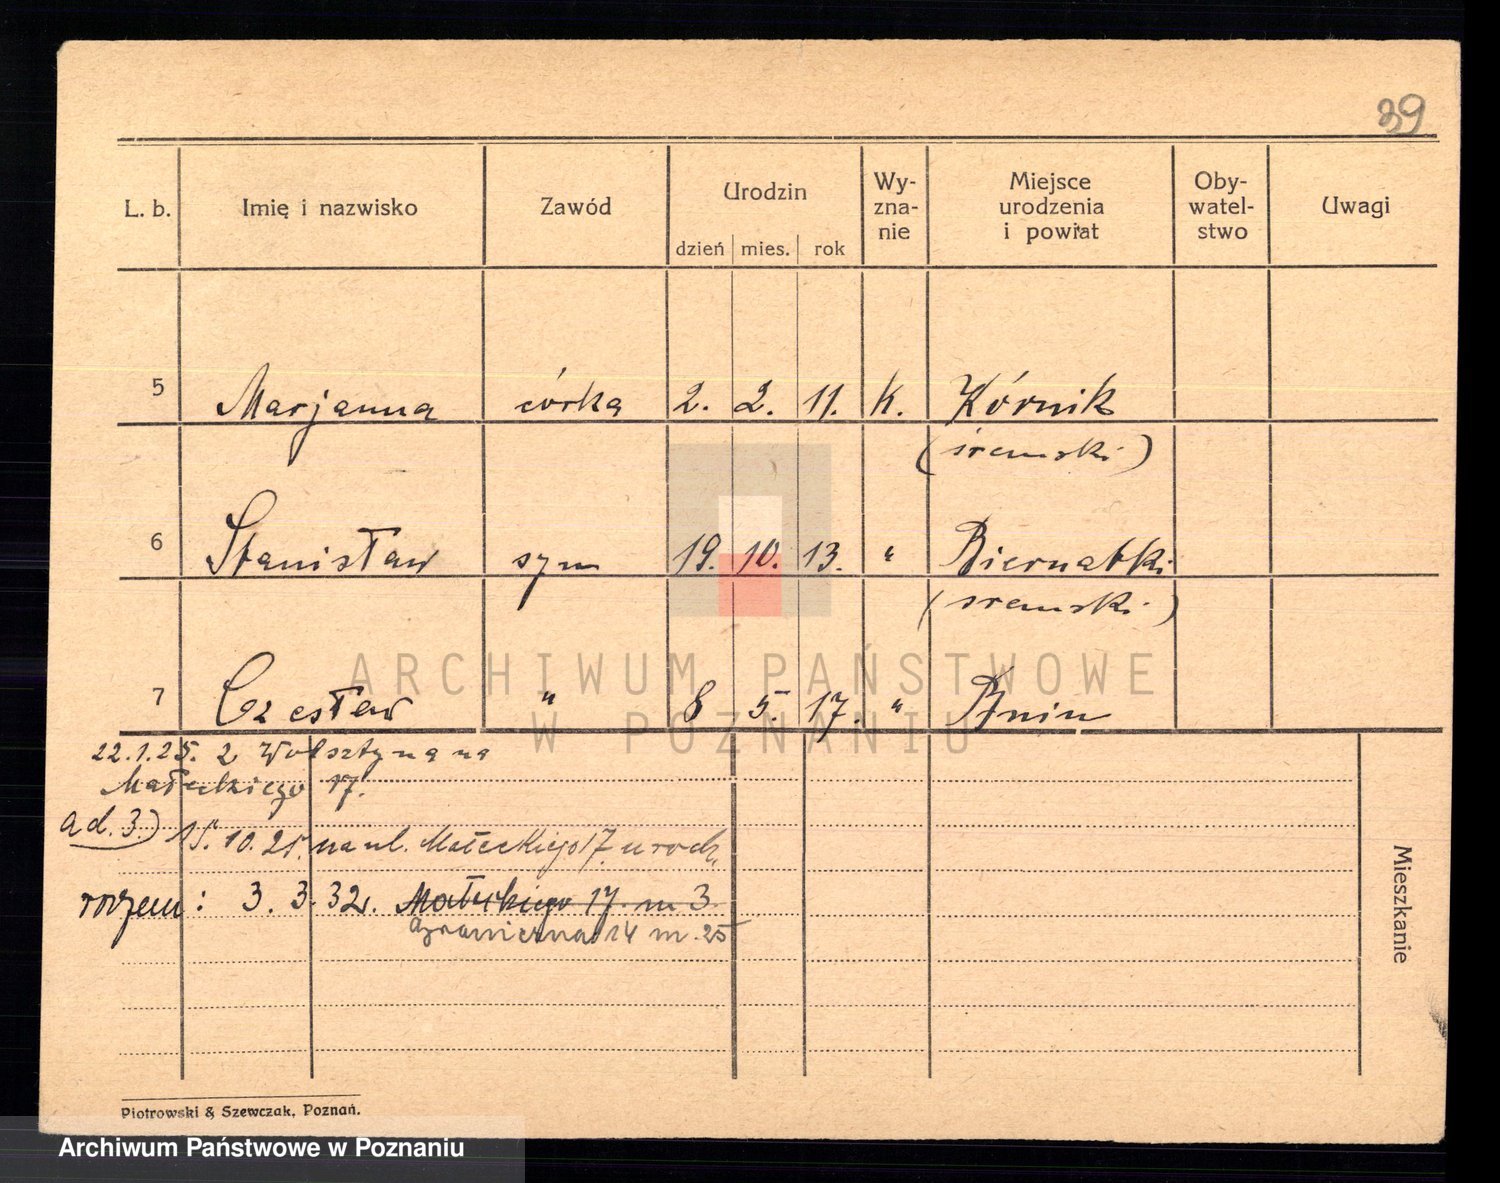 39
L. b. Imię i nazwisko Zawód Urodzin dzień mies. rok Wy-zna-nie Miejsce urodzenia i powiat Oby-watel-stwo Uwagi
5 Marjanna córka 2. 2. 11. k. Kórnik
(śremski)
6 Stanisław syn 19. 10. 13. " Biernatki
(śremski)
7 Czesław " 8 5. 17. " Bnin
22.1.25. z Wolsztyna na
Małeckiego 17.
ad. 3.) 15. 10. 25. na ul. Małeckiego 17. urodz.
razem : 3. 3. 32. Małeckiego 17. m 3.
Graniczna 14 m. 25
Mieszkanie
Piotrowski & Szewczak, Poznań.
ARCHIWUM PAŃSTWOWE
W POZNANIU
Archiwum Państwowe w Poznaniu